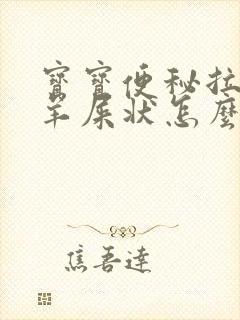 寶寶便秘拉
羊屎狀怎麼
焦吾達